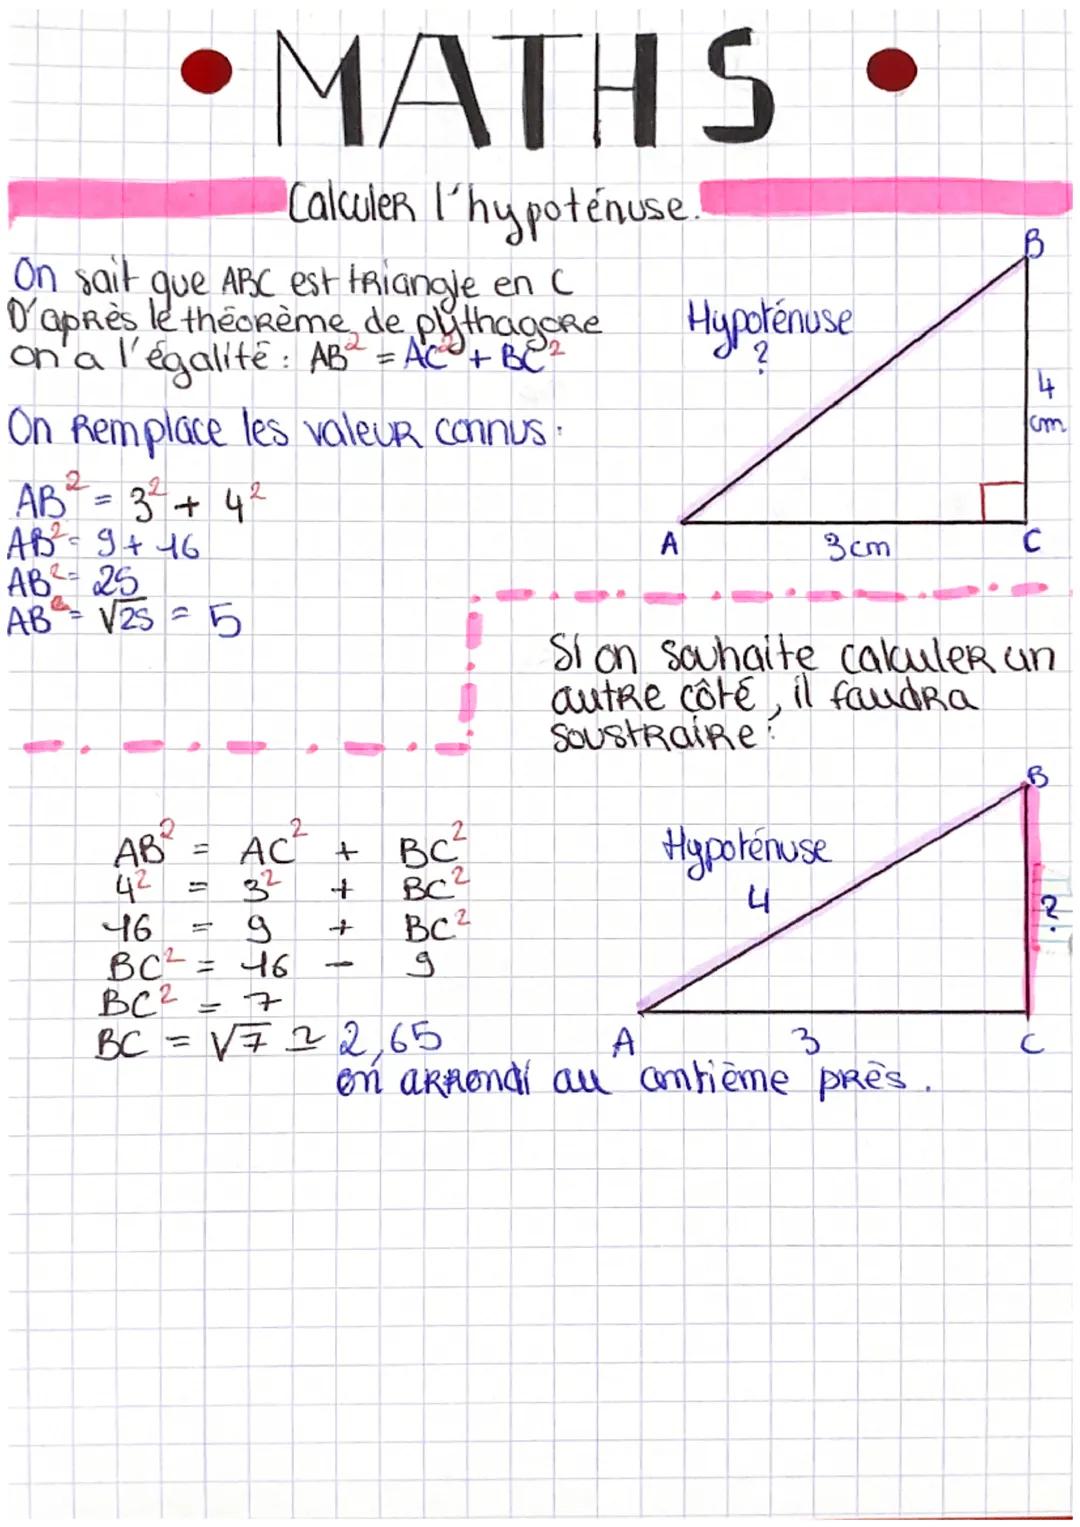 • MATHS •
Calculer l'hypoténuse.
On sait que ABC est triangle en C
D'après le théorème de pythagore
on a l'égalité : AB² = AC² + BC²
On Remplace les valeur connus :
AB² = 3² + 4²
AB² = 9 + 16
AB² = 25
AB = √25 = 5
B
Hypoténuse
?
4
cm
A
3cm
C
Si on souhaite calculer un
autre côté, il faudra
soustraire :
AB² = AC² + BC²
4² = 3² + BC²
16 = 9 + BC²
BC² = 16 - 9
BC² = 7
BC = √7 ≃ 2,65
on arrondi au centième près.
B
Hypoténuse
4
?
A
3
C